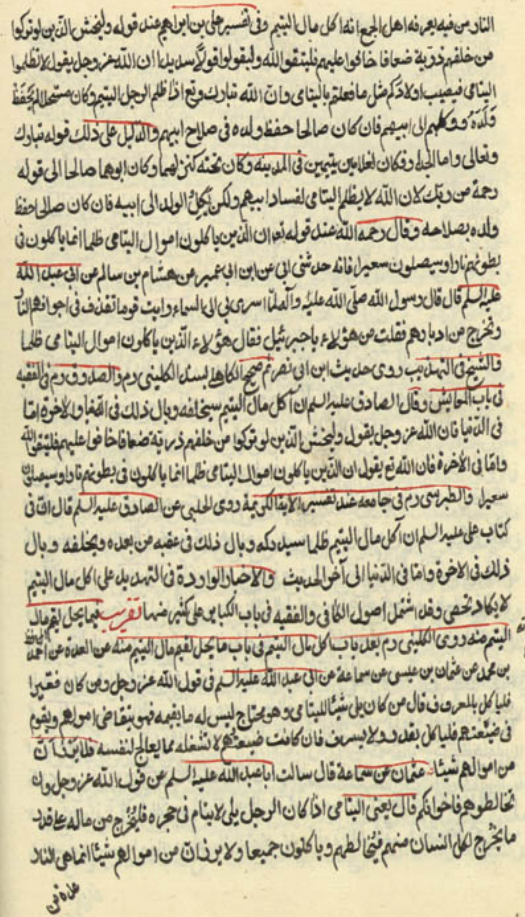 النار من فيه يعرفه اهل الجمع انه اكل مال اليتيم وفى تفسير على بن ابراهيم عند قوله وليخش الذين لو تركوا
من خلفهم ذرية ضعافا خافوا عليهم فليتقوا الله وليقولوا قولا سديدا ان الله عز وجل يقول لا تظلموا
اليتامى فيصيب اولادكم مثل ما فعلتم باليتامى وان الله تبارك وتع اذا ظلم الرجل اليتيم وكان مستحلا لم يحفظ
ولده ووكلهم الى ابيهم فان كان صالحا حفظ ولده فى صلاح ابيهم والدليل على ذلك قوله تبارك
وتعالى واما الجدار فكان لغلامين يتيمين فى المدينة وكان تحته كنز لهما وكان ابوهما صالحا الى قوله
رحمة من ربك لان الله لا يظلم اليتامى لفساد ابيهم ولكن يكل الولد الى ابيه فان كان صالحا حفظ
ولده بصلاحه وقال رحمه الله عند قوله تع ان الذين ياكلون اموال اليتامى ظلما انما ياكلون فى
بطونهم نارا وسيصلون سعيرا فانه حدثنى ابى عن ابن ابى عمير عن هشام بن سالم عن ابى عبد الله
عليه السلم قال قال رسول الله صلى الله عليه وآله لما اسرى بى الى السماء رايت قوما تقذف فى اجوافهم النار
وتخرج من ادبارهم فقلت من هؤلاء يا جبرئيل فقال هؤلاء الذين ياكلون اموال اليتامى ظلما
والشيخ فى التهذيب روى حديث ابن ابى نصر ثم صحيح الكاهلى بسند الكلينى رم والصدوق رم فى الفقيه
فى باب المعايش وقال الصادق عليه السلم ان آكل مال اليتيم سيخلفه وبال ذلك فى الدنيا والاخرة اما
فى الدنيا فان الله عز وجل يقول وليخش الذين لو تركوا من خلفهم ذرية ضعافا خافوا عليهم فليتقوا الله
واما فى الاخرة فان الله تع يقول ان الذين ياكلون اموال اليتامى ظلما انما ياكلون فى بطونهم نارا وسيصلون
سعيرا والطبرسى رم فى جامعه عند تفسير الاية الكريمة روى الحلبى عن الصادق عليه السلم قال ان فى
كتاب على عليه السلم ان آكل مال اليتيم ظلما سيدركه وبال ذلك فى عقبه من بعده ويلحقه وبال
ذلك فى الاخرة واما فى الدنيا الى آخر الحديث والاخبار الواردة فى التهديد على اكل مال اليتيم
لا يكاد تحصى وقد اشتمل اصول الكافى والفقيه فى باب الكبائر على كثير منها تقريب فيما يحل لقيم مال
اليتيم منه روى الكلينى رم بعد باب اكل مال اليتيم فى باب ما يحل لقيم مال اليتيم منه عن العدة عن احمد
بن محمد عن عثمان بن عيسى عن سماعة عن ابى عبد الله عليه السلم فى قول الله عز وجل ومن كان فقيرا
فلياكل بالمعروف قال من كان يلى شيئا لليتامى وهو محتاج ليس له ما يقيمه فهو يتقاضى اموالهم ويقوم
فى ضيعتهم فلياكل بقدر ولا يسرف فان كانت ضيعتهم لا تشغله مما يعالج لنفسه فلا يرزأن
من اموالهم شيئا عثمان عن سماعة قال سالت ابا عبد الله عليه السلم عن قول الله عز وجل وان
تخالطوهم فاخوانكم قال يعنى اليتامى اذا كان الرجل يلى لايتام فى حجره فليخرج من ماله على قدر
ما يخرج لكل انسان منهم فيخالطهم وياكلون جميعا ولا يرزأن من اموالهم شيئا انما هى النار